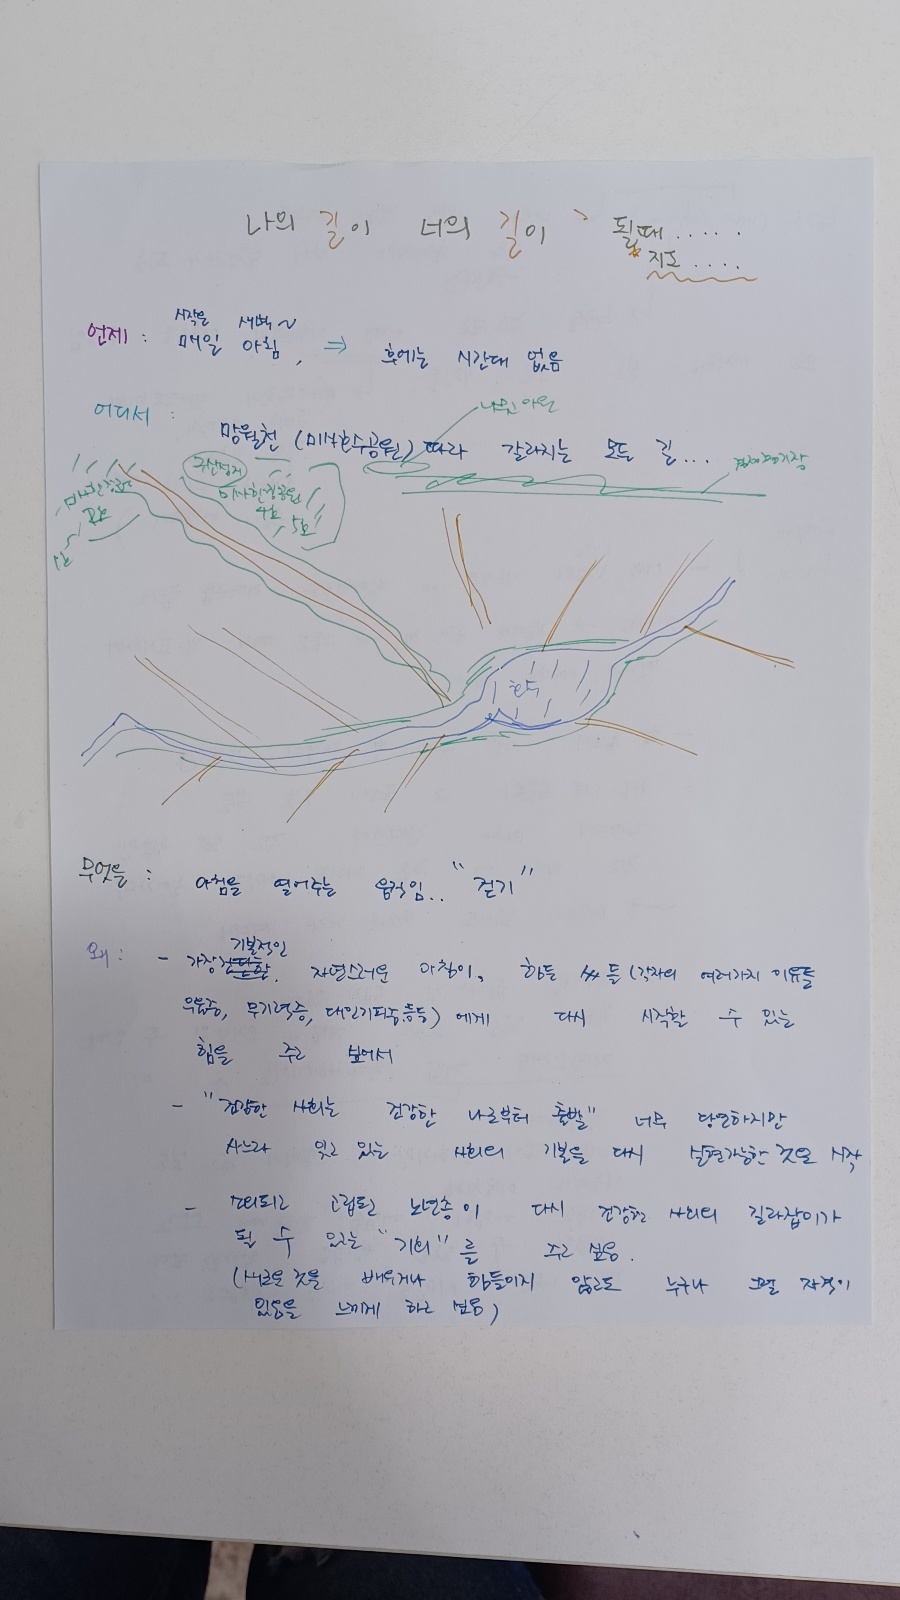 나의 길이 너의 길이 될때.....
지도....
시작은 새벽~
언제 : 매일 아침, ⇒ 후에는 시간대 없음
어디서 :
나원아원
망월천 (미사호수공원) 따라 갈라지는 모든 길...
구산성지
미사한강공원
4호, 5호
호수
무엇을 : 아침을 열어주는 움직임.. "걷기"
기본적인
왜 : - 가장 자연스러운 아침이, 힘든 (각자의 여러가지 이유들
우울증, 무기력증, 대인기피증등등) 에게 다시 시작할 수 있는
힘을 주고 보여서
- "건강한 사회는 건강한 나로부터 출발" 너무 당연하지만
사느라 잊고 있는 사회의 기본을 다시 실현가능한 것으로 시작
- 소외되고 고립된 노년층이 다시 건강한 사회의 길라잡이가
될 수 있는 "기회"를 주고 싶음.
(새로운 것을 배우거나 힘들이지 않고도 누구나 그럴 자격이
있음을 느끼게 하고 싶음)